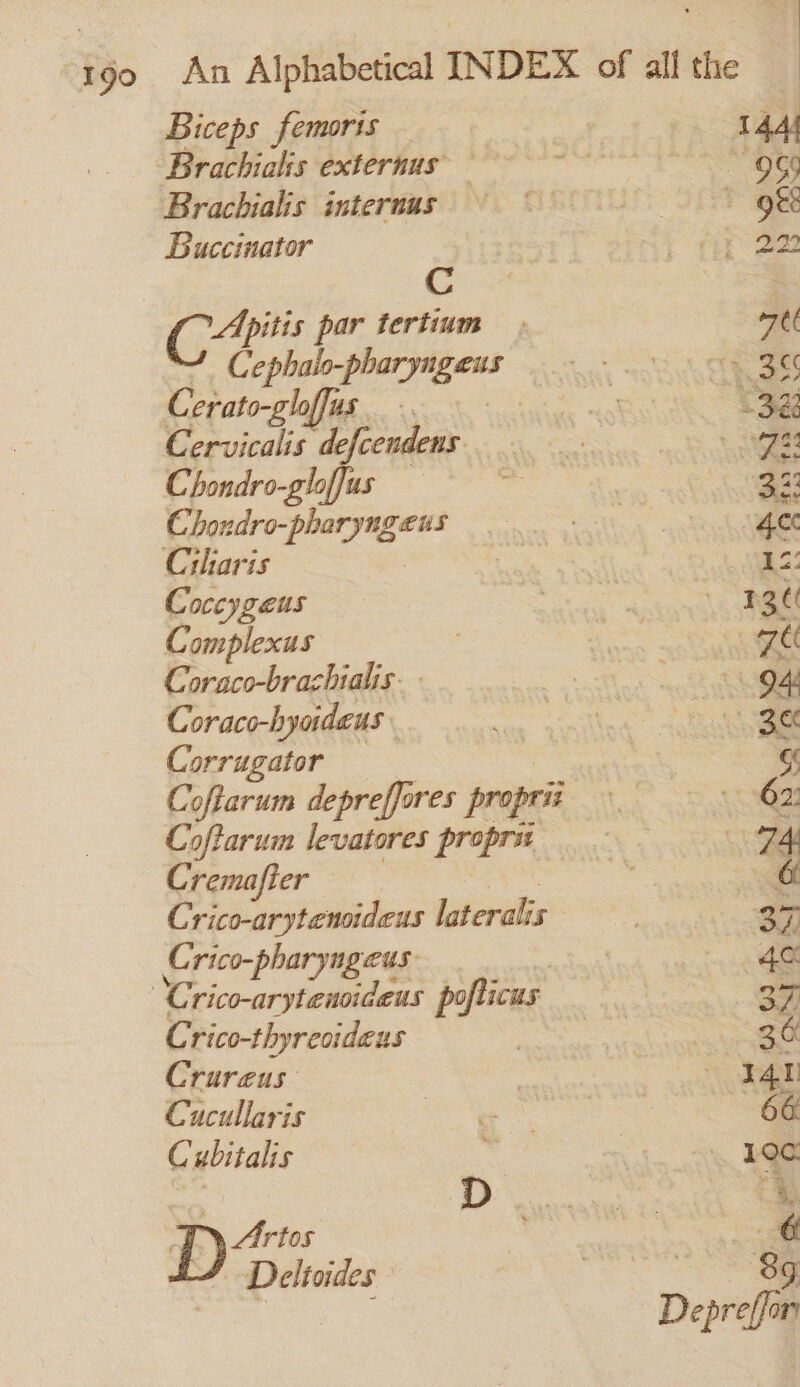 190 An Alphabetical INDEX of all the
Biceps femoris 144
Brachialis externus
Brachialis internus
Buccinator 22
C
CApitis par tertium
Cephalo-pharyngæus
Cerato-gloſſus
Cervicalis deſcendens
Chondro-gloſſus
Chondro-pharyngæus
Ciliaris
Coccygæus
Complexus
Coraco-brachialis 94
Coraco-hyoidæus
Corrugator
Coſtarum depreſſores proprii 62
Coſtarum levatores proprii 74
Cremaſter
Crico-arytænoidæus lateralis 37
Crico-pharyngæus
Crico-arytænoidæus poſticus 37
Crico-thyreoidæus 36
Crureus 141
Cucullaris 66
Cubitalis
D
DArtos
Deltoides 89
Depreſſor